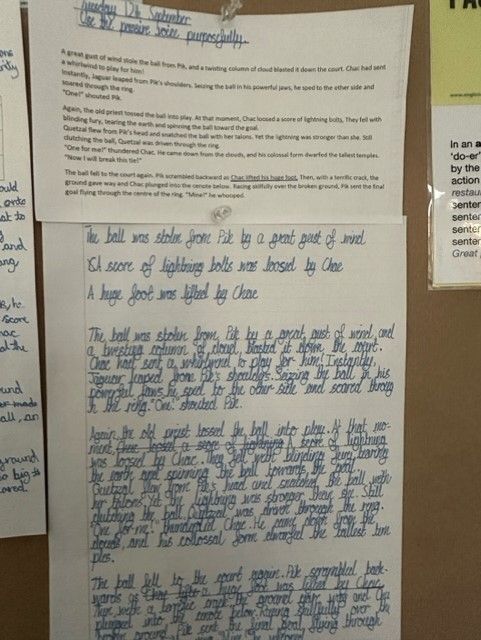 Tuesday 12th September
Use the passive voice purposefully.
A great gust of wind stole the ball from Pik, and a twisting column of cloud blasted it down the court. Chac had sent
a whirlwind to play for him!
Instantly, Jaguar leaped from Pik's shoulders. Seizing the ball in his powerful jaws, he sped to the other side and
soared through the ring.
"One!" shouted Pik.
Again, the old priest tossed the ball into play. At that moment, Chac loosed a score of lightning bolts. They fell with
blinding fury, tearing the earth and spinning the ball toward the goal.
Quetzal flew from Pik's head and snatched the ball with her talons. Yet the lightning was stronger than she. Still
clutching the ball, Quetzal was driven through the ring.
"One for me!" thundered Chac. He came down from the clouds, and his colossal form dwarfed the tallest temples.
"Now I will break this tie!"
The ball fell to the court again. Pik scrambled backward as Chac lifted his huge foot. Then, with a terrific crack, the
ground gave way and Chac plunged into the cenote below. Racing skilfully over the broken ground, Pik sent the final
goal flying through the centre of the ring. "Mine!" he whooped.
The ball was stolen from Pik by a great gust of wind
A score of lightning bolts was loosed by Chac
A huge foot was lifted by Chac
The ball was stolen from Pik by a great gust of wind, and
a twisting column of cloud blasted it down the court.
Chac had sent a whirlwind to play for him! Instantly,
Jaguar leaped from Pik's shoulders. Seizing the ball in his
powerful jaws, he sped to the other side and soared throug
h the ring. "One!" shouted Pik.
Again, the old priest tossed the ball into play. At that mo-
ment, Chac loosed a score of lightning A score of lightning
was loosed by Chac. They fell with blinding fury, tearing
the earth and spinning the ball towards the goal.
Quetzal flew from Pik's head and snatched the ball with
her talons. Yet the lightning was stronger than she. Still
clutching the ball, Quetzal was driven through the ring.
"One for me!" thundered Chac. He came down from the
clouds, and his collosal form dwarfed the tallest tem
ples.
The ball fell to the court again. Pik scrambled back-
wards as a huge foot was lifted by Chac.
ground gave way and Chac
plunged into the cenote below. Racing skillfully over the
broken ground, Pik sent the final goal flying through
In an a
'do-er'
by the
action
restau
Senten
senter
senter
senter
Great